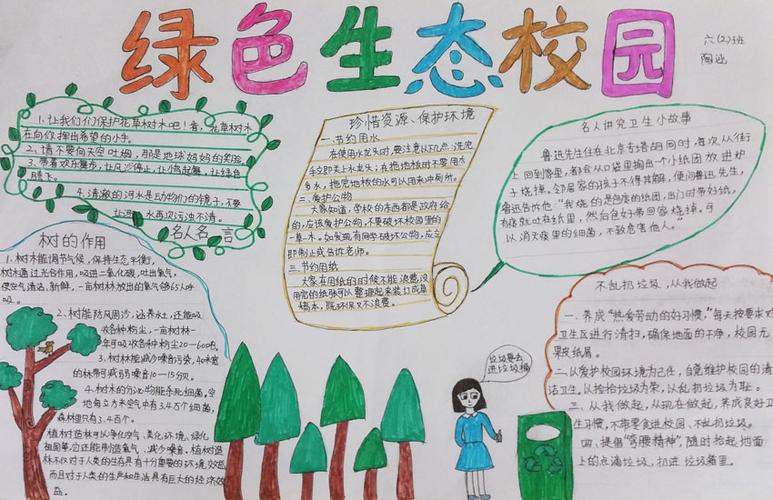 绿色生态校园
六(2)班
1、让我们们保护花草树木吧！看，花草树木
在向你挥出希望的小手。
2、请不要向天空吐烟，那是地球妈妈的笑脸。
3、带着欢乐舞步，让风沙停止，让小鸟起舞，让绿色
腾飞。
4、清澈的河水是动物们的镜子，不要
让进水再次污浊不清。
名人名言
珍惜资源、保护环境
一、节约用水
在使用水龙头时，要注意以下几点：洗完
后立即关上水龙头；在拖地板时不要用太
多水，拖完地板的水可以用来冲厕所。
二、爱护公物
大家知道，学校的东西都是政府给
的，应该爱护公物，不要破坏校园里的
一草一木。如发现有同学破坏公物，应立
即制止或告诉老师。
三、节约用纸
大家在用纸的时候不能浪费，没
用完的纸张可以整理起来装订成草
稿本，既环保又不浪费。
名人讲究卫生小故事
鲁迅先生住在北京专塔的同时，每次从街
上回到客里，都会从口袋里掏出一个小纸团放进炉
子烧掉，邻居家的孩子不得其解，便问鲁迅先生，
鲁迅告诉他“我烧的是包痰的纸团，出门时带好纸，
有痰就吐在纸里，然后包好带回客烧掉。可
以消灭痰里的细菌，不致危害他人。”
树的作用
1、树木能调节气候，保持生态平衡，
树木通过光合作用，吸进二氧化碳，吐出氧气，
使空气清洁、新鲜，一亩树林放出的氧气够65人呼
吸。
2、树能防风固沙，涵养水土，还能吸
收各种粉尘，一亩树林一
年可吸收各种粉尘20—60吨。
3、树林能减少噪音污染，40米宽
的林带可减弱噪音10—15分贝。
4、树木的分泌物能杀死细菌。空
地每立方米空气中有3.4万个细菌，
森林里只有3.4百个。
植树造林可以净化空气、美化环境、绿化
祖国，它还能制造氧气、减少噪音。植树造
林不仅对于人类的生存具有十分重要的环境效益
而且对于人类的生产和生活具有巨大的经济效
益。
垃圾要丢
进垃圾桶
不乱扔垃圾，从我做起
一、养成“热爱劳动的好习惯，”每天按要求对
卫生区进行清扫，确保地面的干净，校园无
果皮纸屑。
二、以爱护校园环境为己任，自觉维护校园的清
洁卫生，以捡拾垃圾为荣，以乱扔垃圾为耻。
三、从我做起，从现在做起，养成良好卫
生习惯，不带零食进校园、不乱扔垃圾。
四、提倡“弯腰精神”，随时捡起地面
上的点滴垃圾，扔进垃圾箱里。